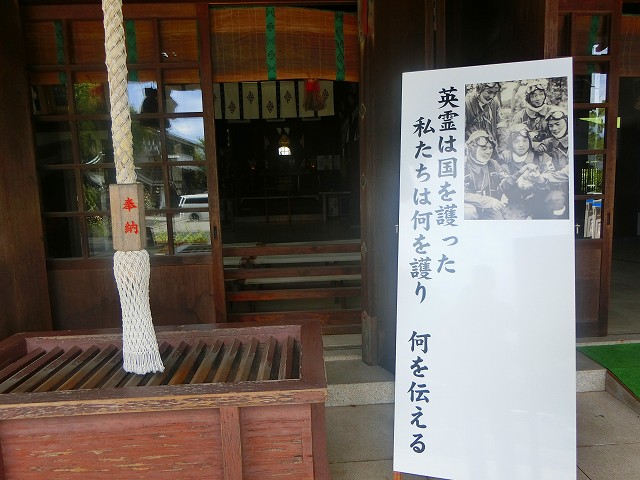 英霊は国を護った
私たちは何を護り　何を伝える
奉納